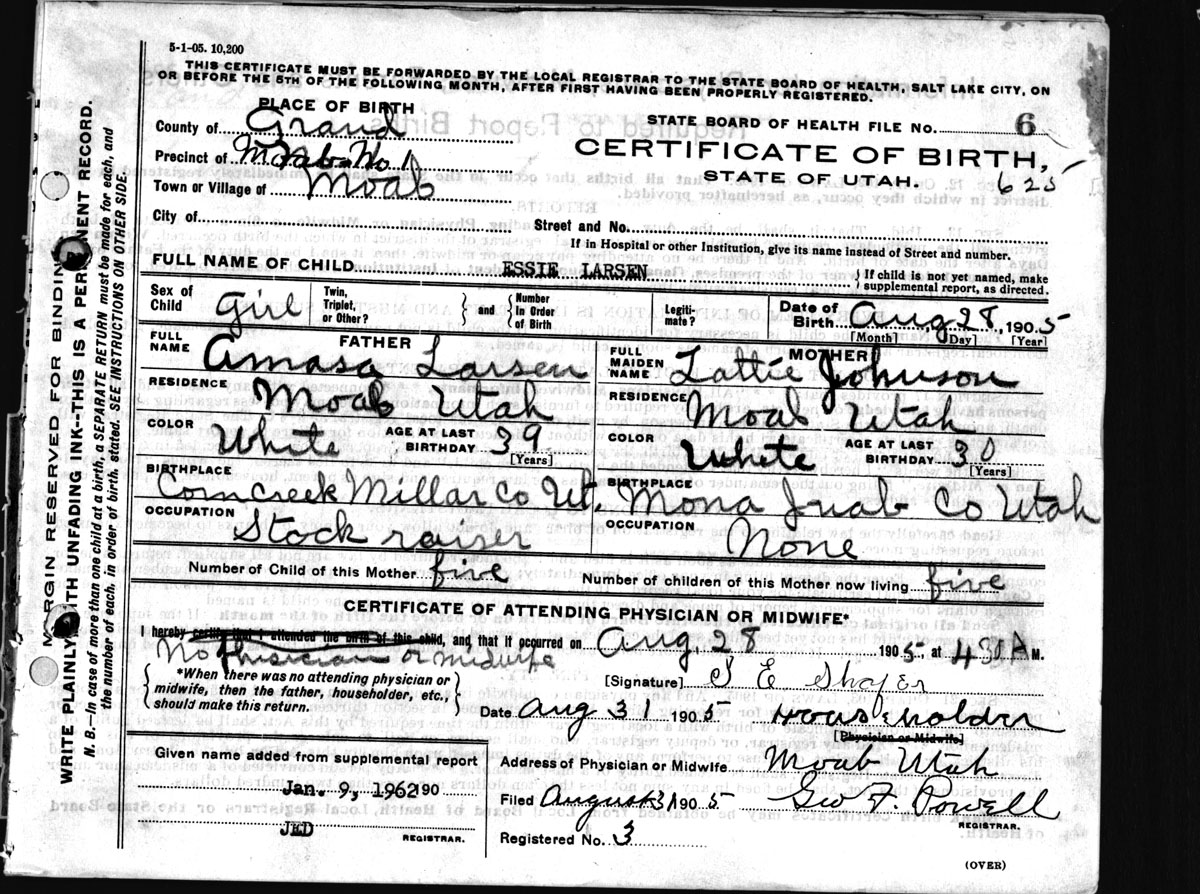 5-1-05. 10,200
THIS CERTIFICATE MUST BE FORWARDED BY THE LOCAL REGISTRAR TO THE STATE BOARD OF HEALTH, SALT LAKE CITY, ON
OR BEFORE THE 5TH OF THE FOLLOWING MONTH, AFTER FIRST HAVING BEEN PROPERLY REGISTERED.
PLACE OF BIRTH
County of Grand
Precinct of Moab No. 1
Town or Village of Moab
City of
STATE BOARD OF HEALTH FILE NO. 6
CERTIFICATE OF BIRTH,
STATE OF UTAH. 625
Street and No.
If in Hospital or other Institution, give its name instead of Street and number.
FULL NAME OF CHILD ESSIE LARSEN
If child is not yet named, make
supplemental report, as directed.
Sex of Child Girl
Twin, Triplet, or Other?
and
Number In Order of Birth
Legiti-mate?
Date of Birth Aug 28, 1905
[Month] [Day] [Year]
FATHER
FULL NAME Amasa Larsen
RESIDENCE Moab Utah
COLOR White AGE AT LAST BIRTHDAY 39 [Years]
BIRTHPLACE Corncreek Millar Co Ut.
OCCUPATION Stock raiser
MOTHER
FULL MAIDEN NAME Lattie Johnson
RESIDENCE Moab Utah
COLOR White AGE AT LAST BIRTHDAY 30 [Years]
BIRTHPLACE Mona Juab Co Utah
OCCUPATION None
Number of Child of this Mother five
Number of children of this Mother now living five
CERTIFICATE OF ATTENDING PHYSICIAN OR MIDWIFE*
I hereby certify that I attended the birth of this child, and that it occurred on Aug. 28 1905 at 430 A M.
No Phisician or midwife
*When there was no attending physician or
midwife, then the father, householder, etc.,
should make this return.
[Signature] S E Shafer
Date Aug 31 1905 Householder
[Physician or Midwife]
Given name added from supplemental report
Jan. 9, 1962 190
JED
REGISTRAR.
Address of Physician or Midwife Moab Utah
Filed August 31 1905 Geo F. Powell
REGISTRAR.
Registered No. 3
(OVER)
MARGIN RESERVED FOR BINDING
WRITE PLAINLY WITH UNFADING INK--THIS IS A PERMANENT RECORD.
N. B.--In case of more than one child at a birth, a SEPARATE RETURN must be made for each, and
the number of each, in order of birth, stated. SEE INSTRUCTIONS ON OTHER SIDE.